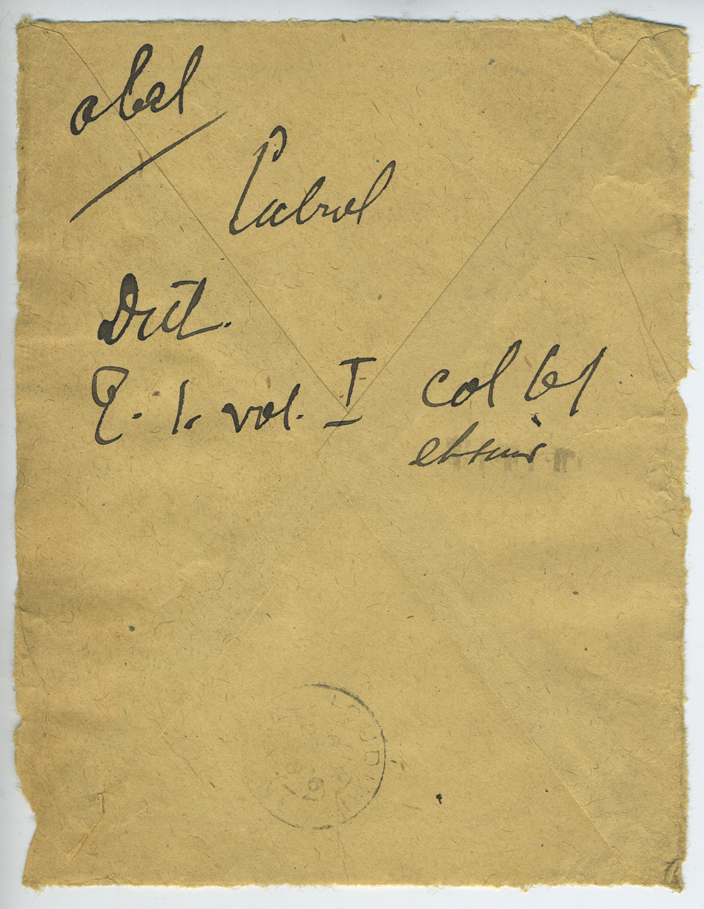 abel
Cabrol
Dict.
T. 1. vol. I col 61
et suiv